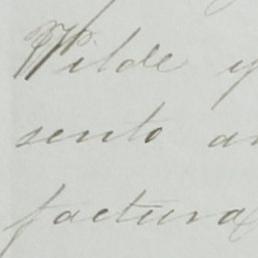 Wilde y
sento a
factura